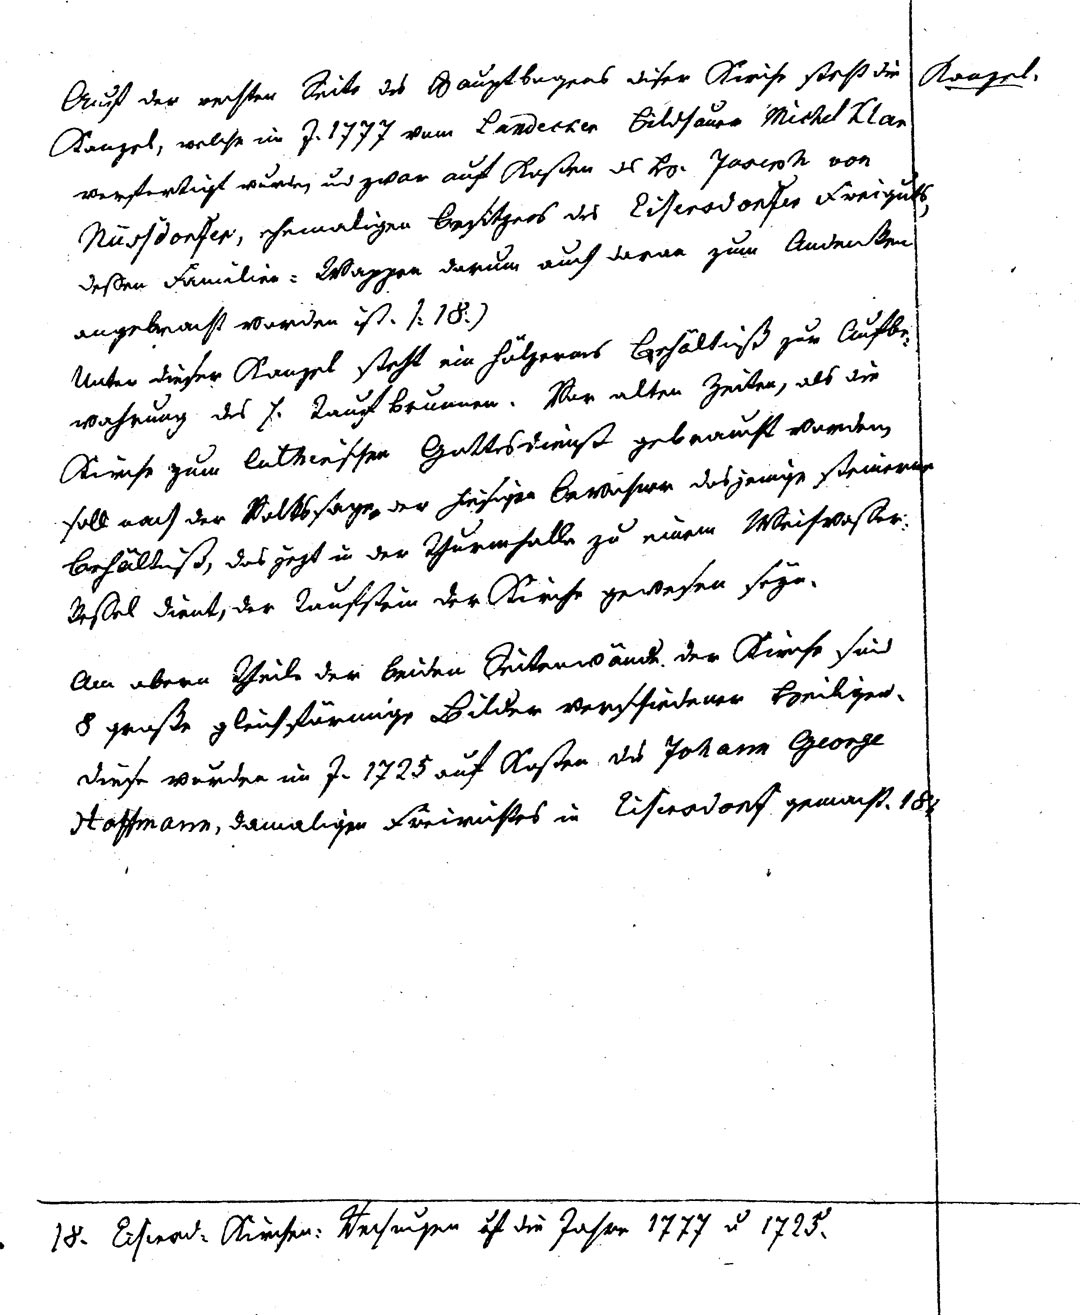 Auf der rechten Seite des Hauptbogens diser Kirche steht die
Kanzel.
Kanzel, welche im J. 1777 vom Landecker Bildhauer Michel Klar
verfertigt wurde, und zwar auf Kosten des Hr. Joseph von
Nüssdorfer, ehemaligen Besitzers des Eisersdorfer Freiguts,
deßen Familien-Wappen darum auch daran zum Andenken
angebracht worden ist. /: 18:)
Unter dieser Kanzel steht ein hölzernes Behältniß zur Aufbe:
wahrung des h. Taufbrunnen. Vor alten Zeiten, als die
Kirche zum lutherischen Gottesdienst gebraucht worden,
soll nach der Volkssage der hiesigen Bewohner dasjenige steinerne
Behältniß, das jezt in der Thurmhalle zu einem Weihwasser:
Keßel dient, der Taufstein der Kirche gewesen seÿn.
Am obern Theile der beiden Seitenwände der Kirche sind
8 große gleichförmige Bilder verschiedener Heiligen.
Diese wurden im J. 1725 auf Kosten des Johann George
Hoffmann, damaligen Freirichters in Eisersdorf gemacht. 18:/
18. Eisersd: Kirchen: Rechnungen auf die Jahre 1777 u 1725.